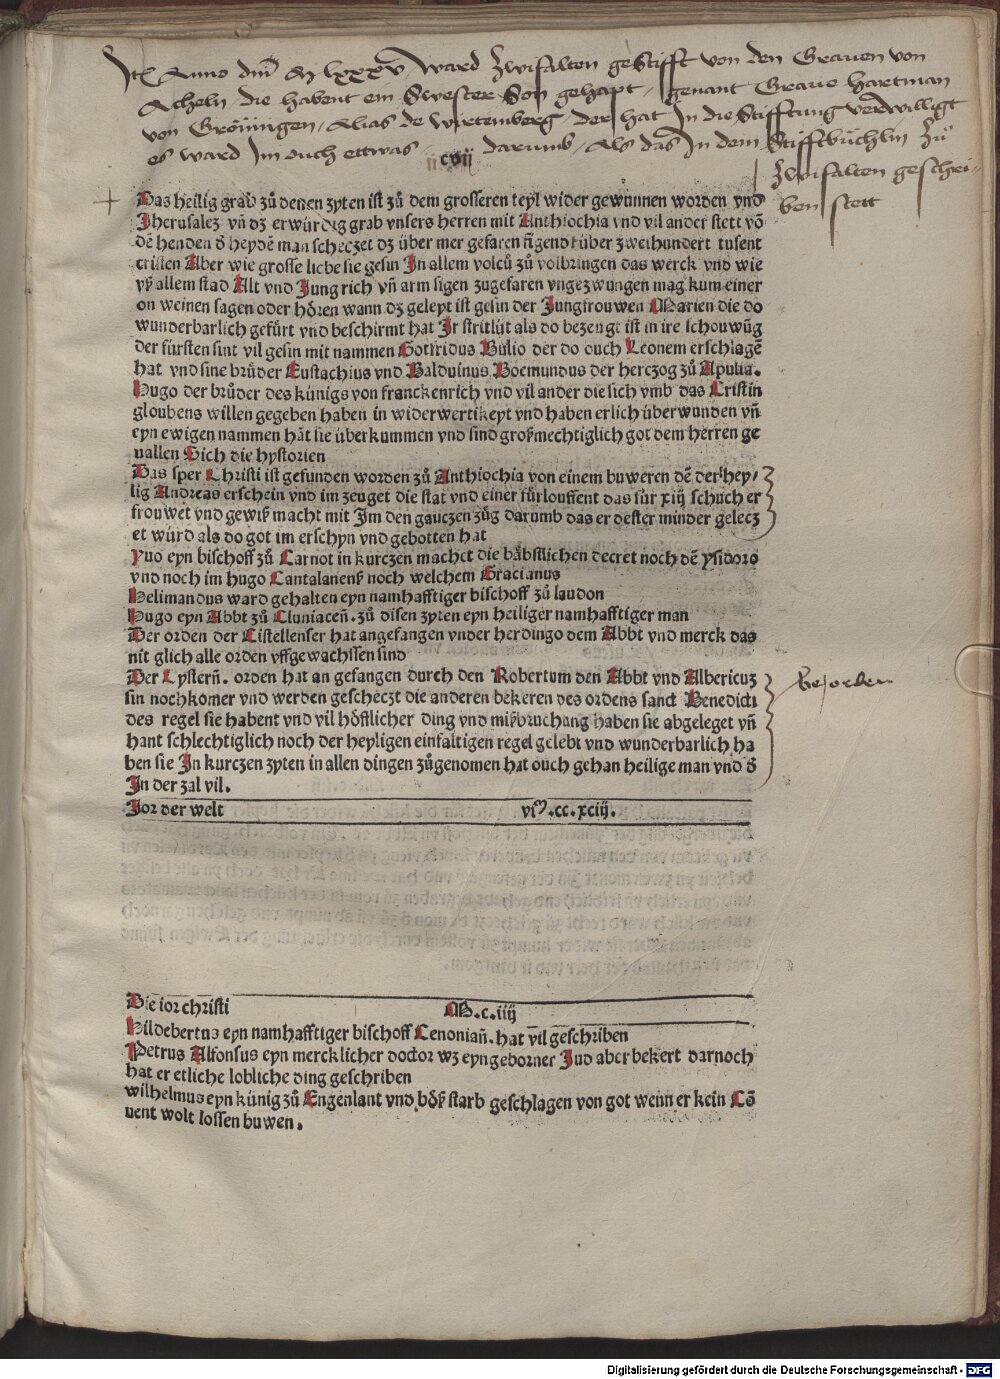 Itē Anno dm̄ M lxxxv ward Zwifalten gestifft von den Grauen von
Acheln die habent ein Swester Son gehapt, genant Graue Hartman
von Gröningen, Alias de Wirtemberg der hat In die Stifftung verwilligt
es ward Im ouch ettwas darumb, Als das In dem Stifftbüchlin zů
Zwifalten geschri-
ben stett
cvij
Das heilig grab zů denen zyten ist zů dem grosseren teyl wider gewunnen worden vnd
Jherusalez vn̄ dz erwürdig grab vnsers herren mit Anthiochia vnd vil ander stett vō
dē henden d̄ heydē man scheczet dz über mer gefaren sigendt über zweihundert tusent
cristen Aber wie grosse liebe sie gesin In allem volcū zů volbringen das werck vnd wie
vß allem stad Alt vnd Jung rich vn̄ arm sigen zugefaren vngezwungen mag kum einer
on weinen sagen oder hören wann dz geleyt ist gesin der Jungfrouwen Marien die do
wunderbarlich gefürt vnd beschirmt hat Jr stritlüt als do bezeugt ist in ire schouwūg
der fürsten sint vil gesin mit nammen Gotfridus Bulio der do ouch Leonem erschlagē
hat vnd sine brüder Eustachius vnd Balduinus. Boemundus der herczog zů Apulia.
Hugo der brůder des künigs von franckenrich vnd vil ander die sich vmb das Cristin
gloubens willen gegeben haben in widerwertikeyt vnd haben erlich überwunden vn̄
eyn ewigen nammen hāt sie überkummen vnd sind großmechtiglich got dem herren ge
uallen Sich die hystorien
Das sper Christi ist gefunden worden zů Anthiochia von einem buweren dē der hey⸗
lig Andreas erschein vnd im zeuget die stat vnd einer fürlouffent das für xiij schuch er
frouwet vnd gewiß macht mit Im den gauczen züg darumb das er dester minder gelecz
et würd als do got im erschyn vnd gebotten hat
Yuo eyn bischoff zů Carnot in kurczen machet die bäbstlichen decret noch dē ysidoro
vnd noch im hugo Cantalanenß noch welchem Gracianus
Helimandus ward gehalten eyn namhafftiger bischoff zů laudon
Hugo eyn Abbt zů Cluniaceñ. zů disen zyten eyn heiliger namhafftiger man
Der orden der Cistellenser hat angefangen vnder herdingo dem Abbt vnd merck das
nit glich alle orden vffgewachssen sind
Der Cystern̄. orden hat an gefangen durch den Robertum den Abbt vnd Albericuz
sin nochkomer vnd werden gescheczt die anderen bekeren des ordens sanct Benedicti
des regel sie habent vnd vil höfflicher ding vnd mißbruchung haben sie abgeleget vn̄
hant schlechtiglich noch der heyligen einfaltigen regel gelebt vnd wunderbarlich ha
ben sie In kurczen zyten in allen dingen zůgenomen hat ouch gehan heilige man vnd d̄
In der zal vil.
b̄ orden
Jor der welt vjM.cc.xciij.
Die ior christi M.c.iiij
Hildebertus eyn namhafftiger bischoff Cenonian̄. hat vil geschriben
Petrus Alfonsus eyn mercklicher doctor wz eyn geborner Jud aber bekert darnoch
hat er etliche lobliche ding geschriben
wilhelmus eyn künig zů Engenlant vnd böß starb geschlagen von got wenn er kein Cō
uent wolt lossen buwen.
Digitalisierung gefördert durch die Deutsche Forschungsgemeinschaft - DFG